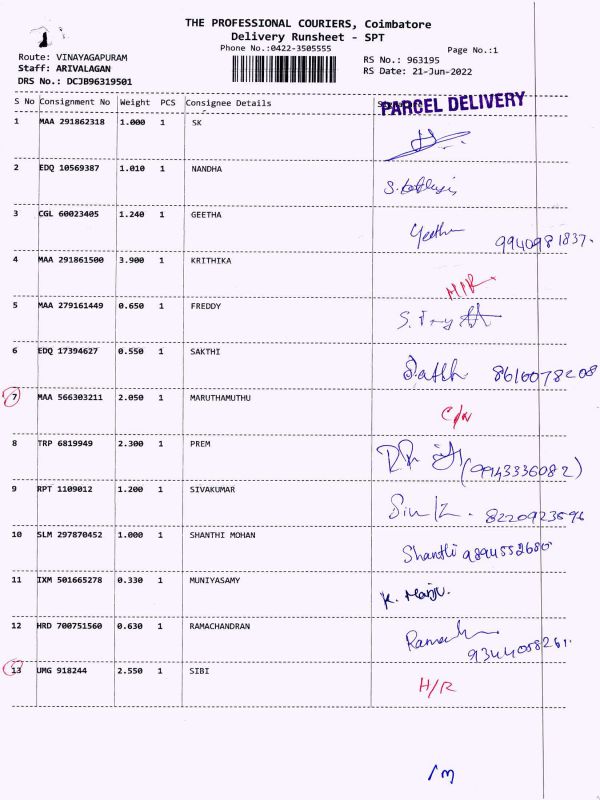 THE PROFESSIONAL COURIERS, Coimbatore
Delivery Runsheet - SPT
Phone No.:0422-3505555
Page No.:1
Route: VINAYAGAPURAM
Staff: ARIVALAGAN
DRS No.: DCJB96319501
RS No.: 963195
RS Date: 21-Jun-2022
S No Consignment No Weight PCS Consignee Details
PARCEL DELIVERY
1 MAA 291862318 1.000 1 SK
2 EDQ 10569387 1.010 1 NANDHA
3 CGL 60023405 1.240 1 GEETHA Geetha 9940981837.
4 MAA 291861500 3.900 1 KRITHIKA
5 MAA 279161449 0.650 1 FREDDY
6 EDQ 17394627 0.550 1 SAKTHI 8616078208
7 MAA 566303211 2.050 1 MARUTHAMUTHU
8 TRP 6819949 2.300 1 PREM (9943336082)
9 RPT 1109012 1.200 1 SIVAKUMAR
10 SLM 297870452 1.000 1 SHANTHI MOHAN Shanthi 9894552680
11 IXM 501665278 0.330 1 MUNIYASAMY K. Manju.
12 HRD 700751560 0.630 1 RAMACHANDRAN
9344058261.
13 UMG 918244 2.550 1 SIBI H/R